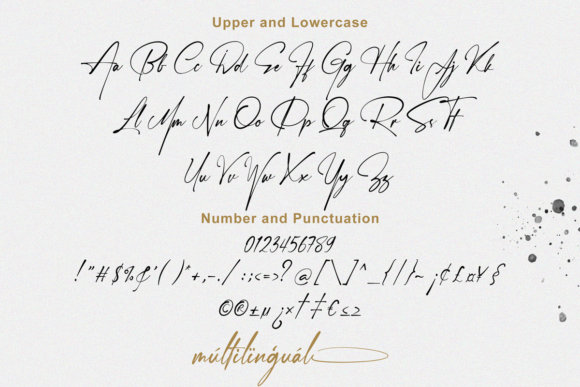 Upper and Lowercase
Aa Bb Cc Dd Ee Ff Gg Hh Ii Jj Kk
Ll Mm Nn Oo Pp Qq Rr Ss Tt
Uu Vv Ww Xx Yy Zz
Number and Punctuation
0123456789
!"#$%&'()*+,-./:;<=>?@[\]^_{|}~¡¢£¤¥§
©®±µ¿×†‡€≤≥
múltilíngúál